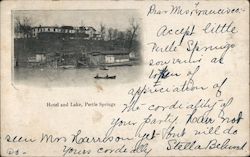 Dear Mrs Francisco-
Accept little
Pertle Springs
souvenir as
token of
appreciation of
the cordiality of
your party. Have not
seen Mrs Harrison yet but will do
so - Yours cordially
Stella
Hotel and Lake, Pertle Springs